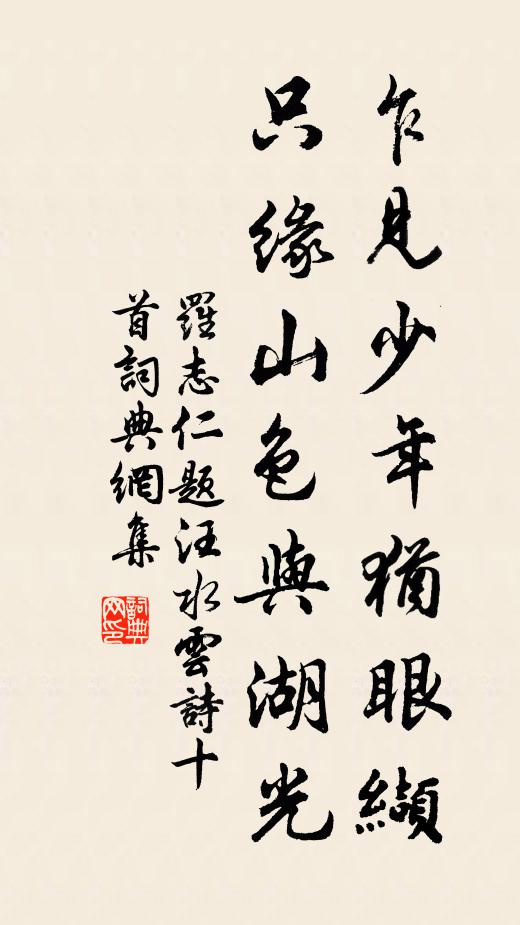 乍見少年猶眼纈
只緣山色與湖光
羅志仁題汪水雲詩十
首詞典網集
詞典
网印